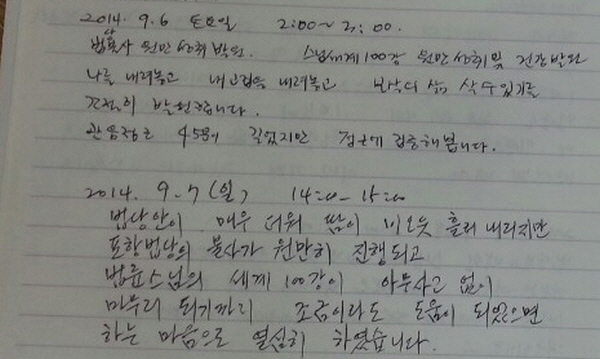 2014. 9. 6 토요일 2:00~3:00.
법당불사 원만성취 발원. 스님세계100강 원만성취 및 건강발원
나를 내려놓고 내 고집을 내려놓고 보살의 삶 살 수 있기를
간절히 발원합니다.
관음정근 45분이 길었지만 정근에 집중해봅니다.
2014. 9. 7 (일) 14:00 ~ 15:00
법당안이 매우 더워 땀이 비오듯 흘러 내리지만
포항법당의 불사가 원만히 진행되고
법륜스님의 세계 100강이 아무사고 없이
마무리 되기까지 조금이라도 도움이 되었으면
하는 마음으로 열심히 하였습니다.